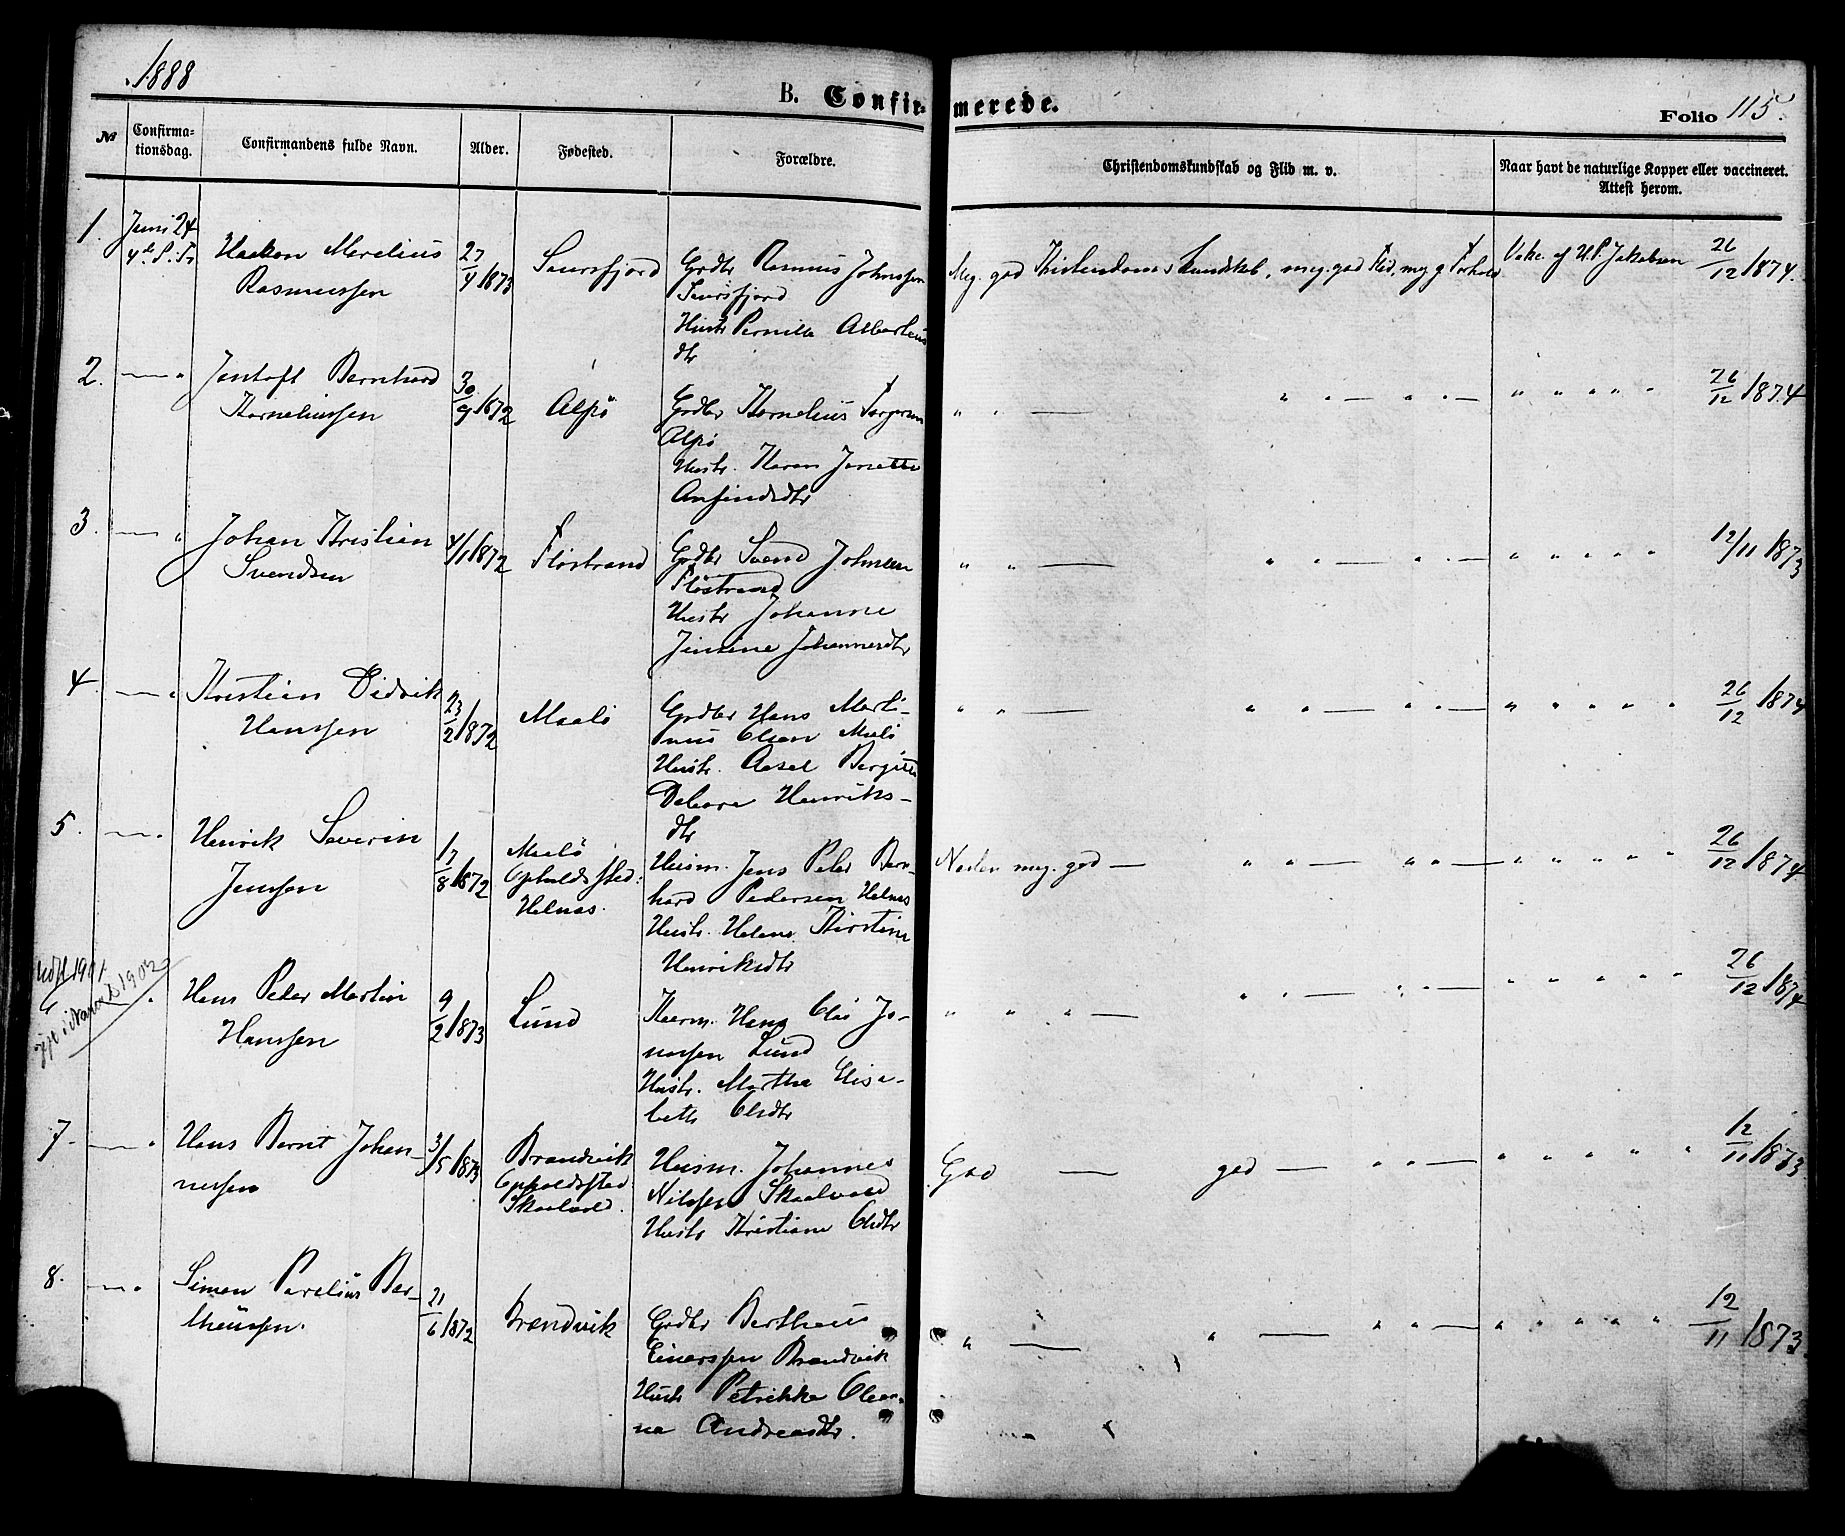 1888
B. Confir-
merede.
Folio 115.
№
Confirma-
tionsdag.
Confirmandens fulde Navn.
Alder.
Fødested.
Forældre.
Christendomskundskab og Flid m. v.
Naar havt de naturlige Kopper eller vaccineret.
Attest herom.
1.
Juni 24
4de S. Tr
Haakon Merelius
Rasmussen
27/4 1873
Sørfjord
Grdbr Rasmus Johnsen
Hustr Pernille
dtr
Meg. god Kristendomskundskab, meg. god Flid, meg g Forhold
Vake. af H. P. Jakobsen 26/12 1874.
2. — "
Jentoft Bernhard
Kornelius­sen
30/9 1872
Alsø
Grdbr Kornelius
Alsø
Hustr. Karen Jonette
Anfindsdtr
" " — " " — " " — " " " " " 26/12 1874
3. — "
Johan Kristian
Svendsen
4/1 1872
Fløstrand
Grdbr Svend Johnsen
Fløstrand
Hustr Johanne
Jensine Johannesdtr
" " — " " — " " — " " " " " 12/11 1873
4. — "
Kristian Didrik
Hanssen
23/2 1872
Maalø
Grdbr Hans Marti-
nus Olsen Maalø
Hustr. Aasel Bergitte
Debora Henriks-
dtr
" " — " " — " " — " " " " " 26/12 1874
5. — "
Henrik Severin
Jenssen
17/8 1872
Maalø
Opholdssted:
Helnæs.
Husm. Jens Peder Bern-
hard Pedersen Helnæs
Hustr. Helene Kirstine
Henriksdtr
Næsten meg. god — " " — " " — " " " " " 26/12 1874
Udfl 1901
6 — "
Hans Peder Martin
Hanssen
9/2 1873
Lund
Hans Olai Jo-
nassen Lund
Hustr. Martha Elisa-
beth Olsdtr
" " " — " " — " " — " " " " " 26/12 1874
7. — "
Hans Bernt Johan-
nessen
3/5 1873
Brændvik
Opholdssted
Skaalvold.
Husm. Johannes
Nilssen Skaalvold
Hustr Kristiane Olsdtr
God — god — " " — " " " " " 12/11 1873
8. — "
Simon Parelius Ber-
theussen.
21/6 1872
Brændvik
Grdbr Bertheus
Einerssen Brændvik
Hustr Petrikke Olea-
na Andreasdtr.
" — " — " " — " " " " " 12/11 1873